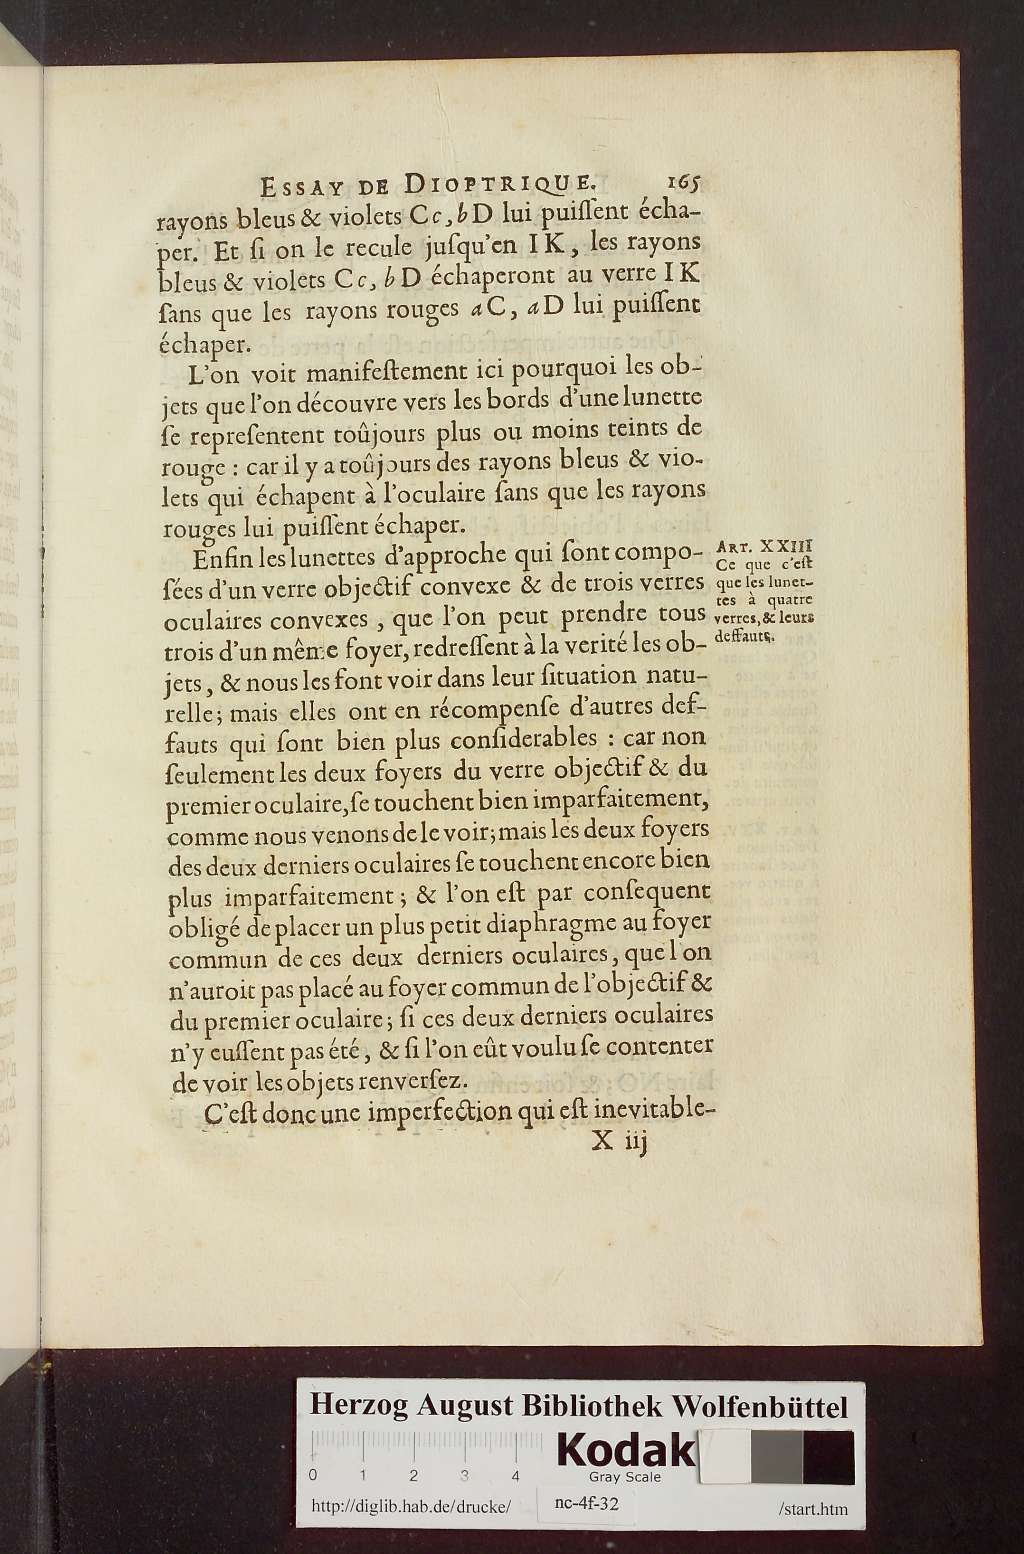 ESSAY DE DIOPTRIQUE. 165
rayons bleus & violets Cc, bD lui puiſſent écha-
per. Et ſi on le recule juſqu'en IK, les rayons
bleus & violets Cc, bD échaperont au verre IK
ſans que les rayons rouges aC, aD lui puiſſent
échaper.
L'on voit manifeſtement ici pourquoi les ob-
jets que l'on découvre vers les bords d'une lunette
ſe repreſentent toûjours plus ou moins teints de
rouge : car il y a toûjours des rayons bleus & vio-
lets qui échapent à l'oculaire ſans que les rayons
rouges lui puiſſent échaper.
Enfin les lunettes d'approche qui ſont compo-
ſées d'un verre objectif convexe & de trois verres
oculaires convexes, que l'on peut prendre tous
trois d'un même foyer, redreſſent à la verité les ob-
jets, & nous les font voir dans leur ſituation natu-
relle; mais elles ont en récompenſe d'autres def-
fauts qui ſont bien plus conſiderables : car non
ſeulement les deux foyers du verre objectif & du
premier oculaire, ſe touchent bien imparfaitement,
comme nous venons de le voir; mais les deux foyers
des deux derniers oculaires ſe touchent encore bien
plus imparfaitement; & l'on eſt par conſequent
obligé de placer un plus petit diaphragme au foyer
commun de ces deux derniers oculaires, que l'on
n'auroit pas placé au foyer commun de l'objectif &
du premier oculaire; ſi ces deux derniers oculaires
n'y euſſent pas été, & ſi l'on eût voulu ſe contenter
de voir les objets renverſez.
C'eſt donc une imperfection qui eſt inevitable-
X iij
ART. XXIII
Ce que c'eſt
que les lunet-
tes à quatre
verres, & leurs
deffauts.
Herzog August Bibliothek Wolfenbüttel
0 1 2 3 4
Kodak
Gray Scale
http://diglib.hab.de/drucke/ nc-4f-32 /start.htm